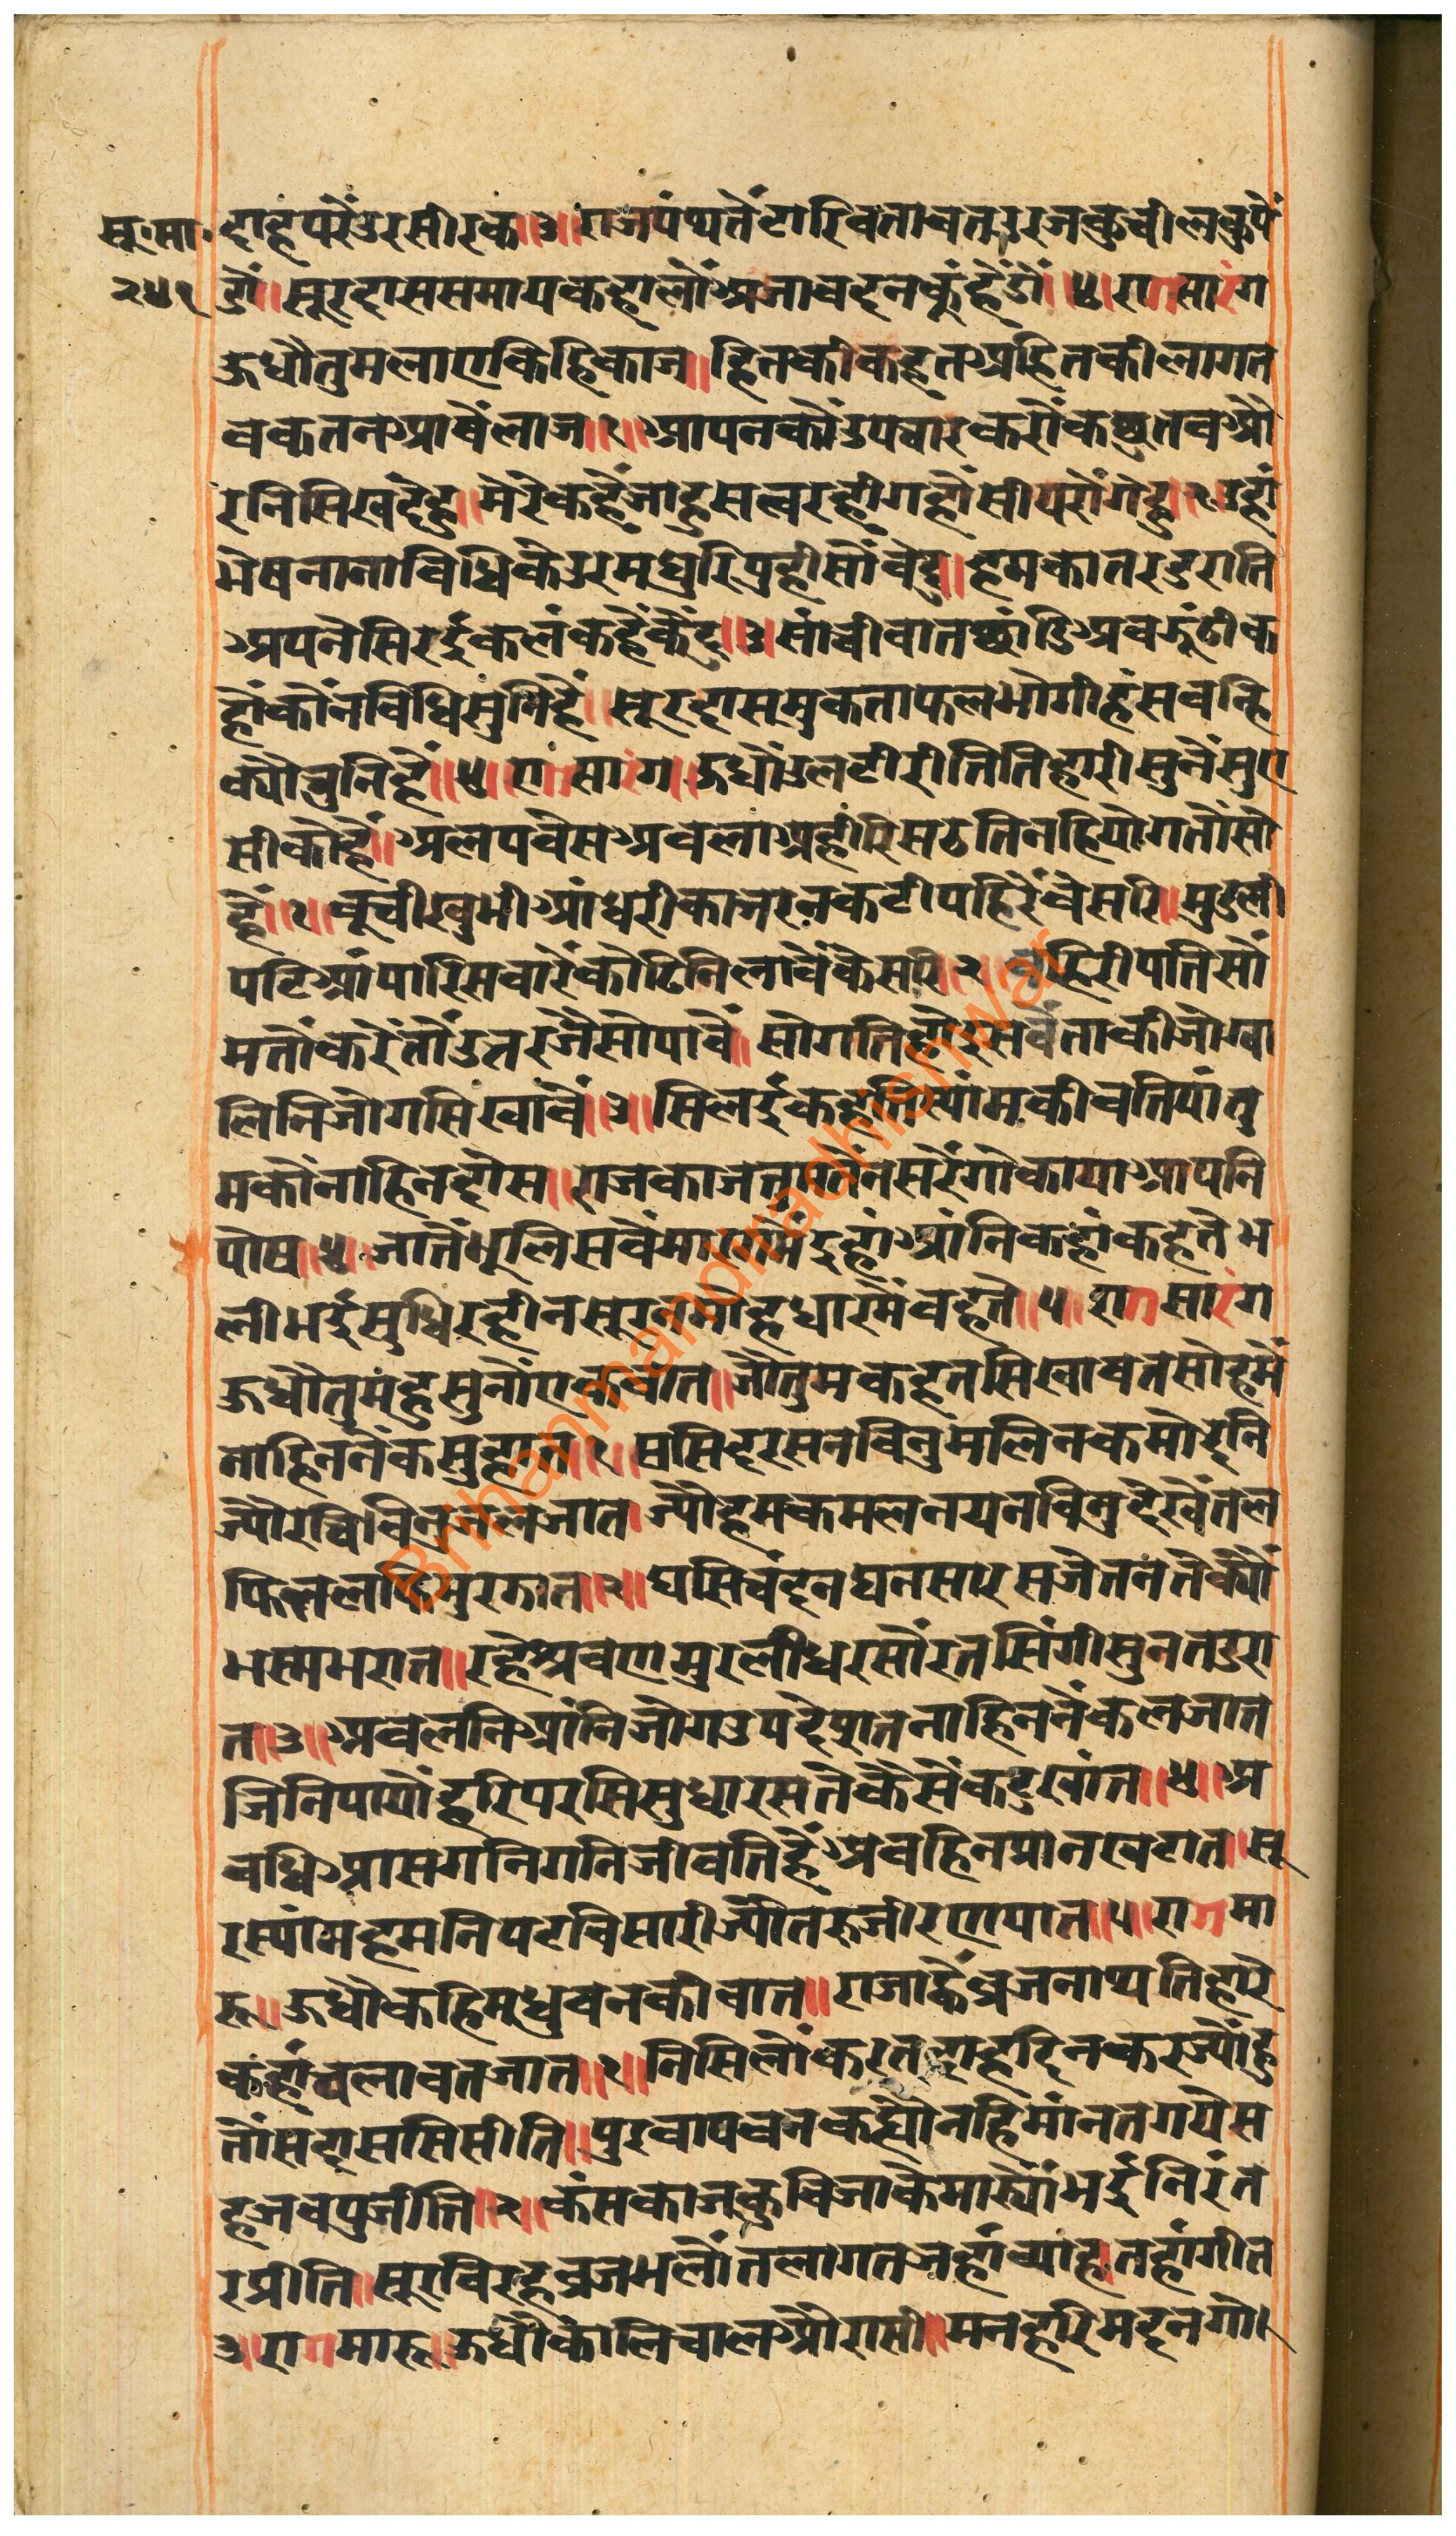 सू.मा. दाहपरैउरसीरक॥३॥राजपंथतैंटारिबतावतउरजकुचीलकुपैं
२५१ डौं॥सूरदाससमायकहालौंअजाबदनकुंहैडौं॥४॥रागसारंग
ऊधौतुमलाएकिहिकाज॥हितकीकहतअहितकीलागत
बकतनआवैंलाज॥१॥आपनकौंउपचारकरौंकछुतबऔ
रनिसिखदेहु॥मेरेकहैंजाहुसत्वरहीगहौंसीयरौंगेहु॥२॥उहां
भेषनानाविधिकेउरमधुरिपुहीसौंबेदु॥हमकातरडुराति
अपनेसिरदुईकलंकहैंकैंद॥३॥सांचीबातछांडिअबझूंठीक
हौंकौंनबिधिसुनिहैं॥सूरदासमुकताफलभोगीहंसबन्हि
क्यौंचुनिहैं॥४॥रागसारंग॥ऊधौंउलटीरीतितिहारीसुनैंसुए
सीकोहैं॥अलपबेसअबलाअहीरिसठतिनहियोगतौंसो
हैं॥१॥बूचीखुभीआंधरीकाजरनकटीपहिरैंबेसरि॥मुडली
पटिआंपारिसवारैंकोढिनिलावैंकेसरि॥२॥बहिरीपतिसौं
मतौंकरैंतौंउतरजैसोपावैं॥सोगतिहोइसबैंताकीजोग्वा
लिनिजोगसिखावैं॥३॥सिखईकहतिस्यांमकीबतियांतु
मकौंनाहिनदोस॥राजकाजतुमतेंनसरैंगोकायाआपनि
पोष॥४॥जातैंभूलिसबैंमारगमैंइहांआंनिकहांकहते॥भ
लीभईसुधिरहीनसूरतमोहधारमैंबहते॥५॥रागसारंग
ऊधौतुमंहुसुनौंएकबात॥जोतुमकहतसिखावतसोहमैं
नाहिननैंकसुहात॥१॥ससिदरसनबिनुमलिनकमोदनि
ज्यौरबिबिनुजलजात॥ज्यौहमकमलनयनबिनुदेखैंतल
फितलफिमुरझात॥२॥घसिचंदनघनसारसजेतनतेक्यौं
भस्मभरात॥रहेश्रवणमुरलीधरसौंरतसिंगीसुनतडरा
त॥३॥अबलनिआंनिजोगउपदेसातनाहिननैंकलजात
जिनिपायोंहरिपरसिसुधारसतेकैसैंकटुखांत॥४॥अ
बधिआसगनिगनिजीवतिहैंअबहिनप्रानखटात॥सू
रस्यांमहमनिपटबिसारीज्यौंतरुजीरणपात॥५॥रागमा
रू॥ऊधौकहिमधुबनकीबात॥राजाह्वैंब्रजनाथतिहारे
कहांचलावतजात॥१॥निसिलौंकरतदाहदिनकरज्यौंहु
तौंसदाससिसीति॥पुरवापवनकह्यौनहिमांनतगयेस
हजबपुजीति॥२॥कंसकाजकुबिजाकेमार्यौंभईनिरंत
रप्रीति॥सूरबिरहब्रजभलौंनलागतजहांब्याहतहांगीत
३॥रागमारू॥ऊधौकालिचालऔरासी॥मनहरिमदनगो